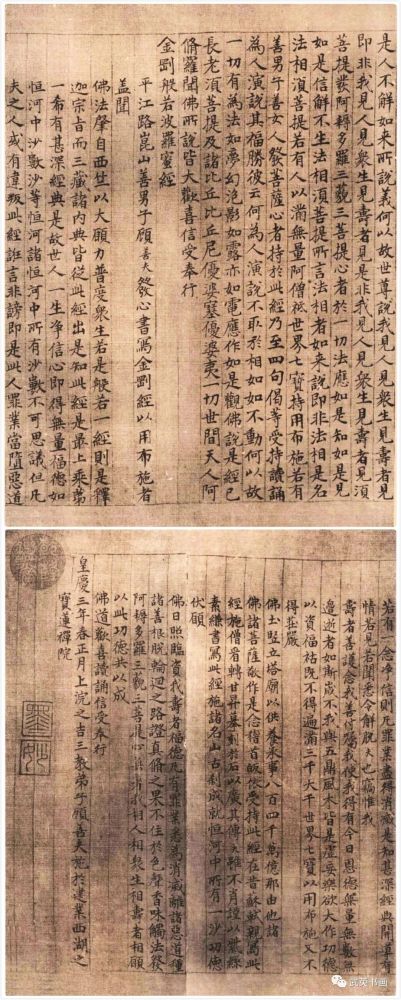 是人不解如来所說義何以故世尊說我見人見衆生見壽者見
即非我見人見衆生見壽者見是非我見人見衆生見壽者見須
菩提發阿耨多羅三藐三菩提心者於一切法應如是知如是見
如是信解不生法相須菩提所言法相者如来說即非法相是名
法相須菩提若有人以滿無量阿僧祇世界七寶持用布施若有
善男子善女人發菩薩心者持於此經乃至四句偈等受持讀誦
為人演說其福勝彼云何為人演說不取於相如如不動何以故
一切有為法如夢幻泡影如露亦如電應作如是觀佛說是經已
長老須菩提及諸比丘比丘尼優婆塞優婆夷一切世間天人阿
脩羅聞佛所說皆大歡喜信受奉行
金剛般若波羅蜜經
平江路崑山善男子顧善夫發心書寫金剛經以用布施者
蓋聞
佛法肇自西竺以大願力普度衆生若是般若一經則是釋
迦宗旨而三藏諸内典皆從此經出是知此經是最上乘第
一希有甚深經典是故世人一生淨信心即得無量福德如
恒河中沙數沙等恒河諸恒河中所有沙數不可思議但凡
夫之人或有違叛此經誑言非謗即是此人罪業當墮惡道
若有一念淨信則凡罪業盡得消滅是知甚深經典開算有
情若見若聞悉令解脫夫也竊惟我
壽者善護念我善付囑我使我得有今日恩德無量無數無
邊逝者如斯歲不我與五鼎風木皆是虛妄樂欲大作功德
以資福祜既不得遍滿三千大千世界七寶以用布施又不
得莊嚴
佛土竪立塔廟以供養承事八百四千萬億那由他諸
佛諸菩薩敬作是念稽首皈依受持此經在昔蘇軾親寫此
經施僧看轉甘昇摹刻于石以廣其傳夫雖不肖謹以紫綵
素縑書寫此經施諸名山古刹成就恒河中所有一沙功德
伏願
佛日照臨資我壽者福德凡有罪業悉為消滅離諸惡道種
諸善根脫輪迴之路證真脩之果不住於色聲香味觸法發
阿耨多羅三藐三菩提心於諸我相人相衆生相壽者相願
以此功德共以成
佛道歡喜讀誦信受奉行
皇慶三年春正月上浣之吉三教弟子顧善夫施於建業西湖之
寶蓮禪院
墨妙
武英书画